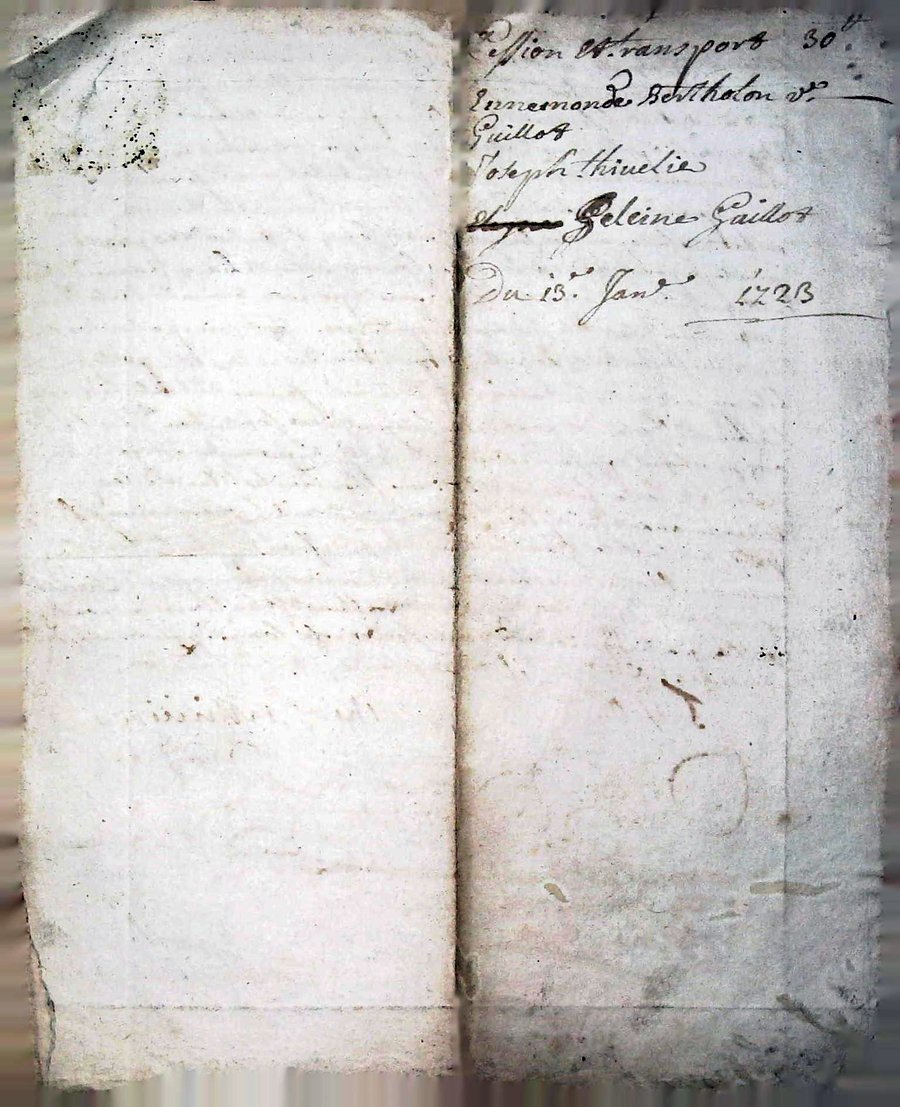 Cession et transport 30ᵗᵗ
Ennemonde Bertholon vᵉ
Guillot
Joseph thivelie
Geleine Guillot
Du 13ᵉ Janᵛ 1723